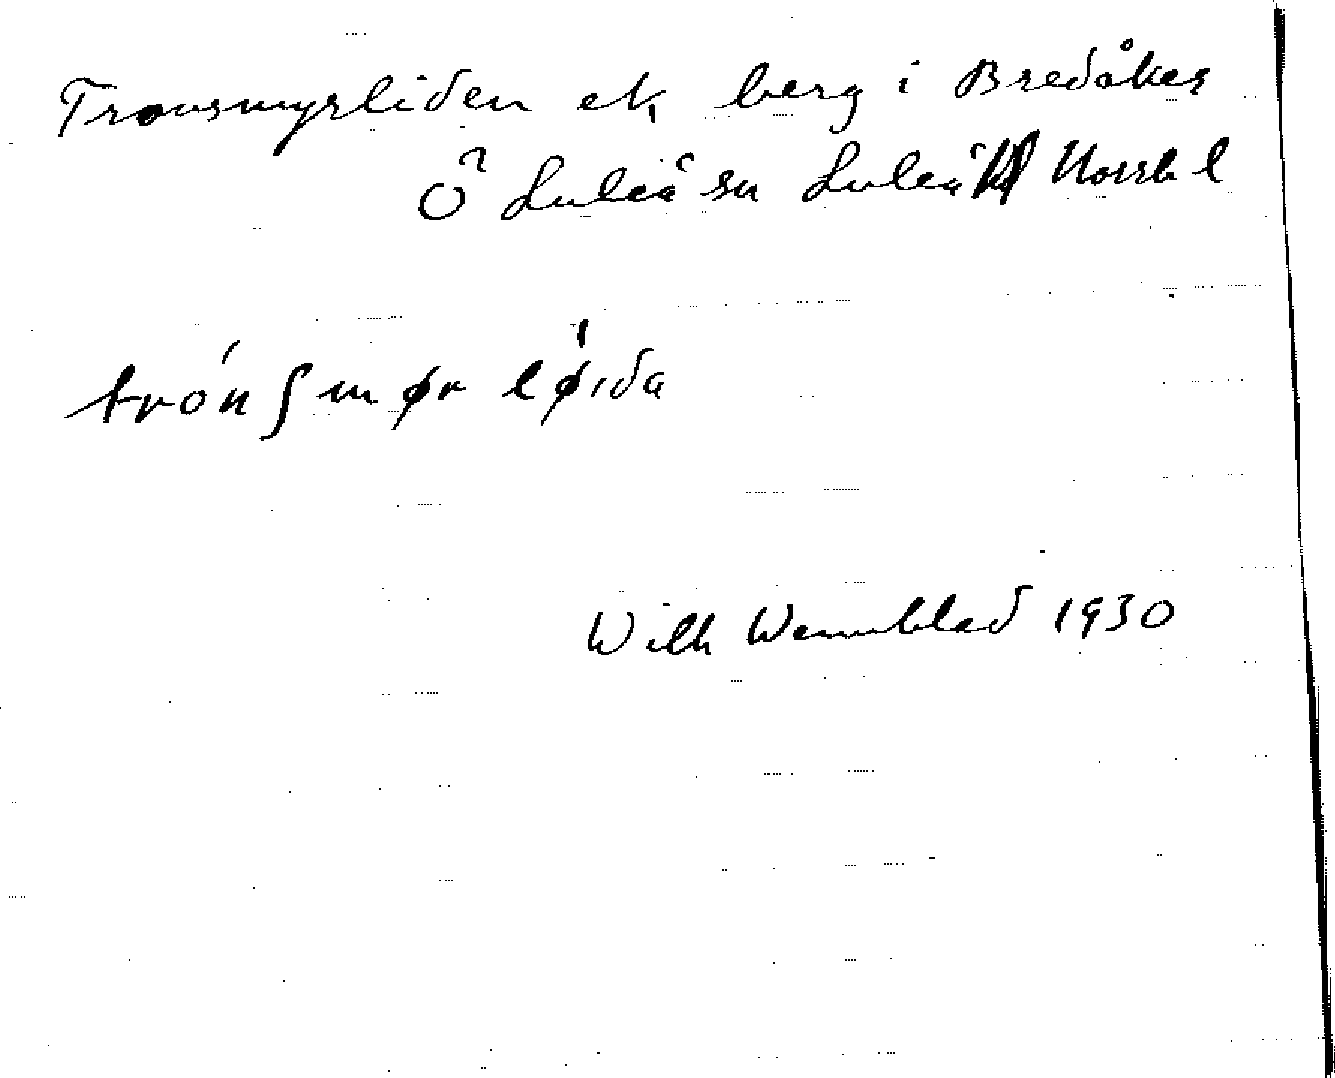 Tronsmyrliden ett berg i Bredåker
Ö Luleå sn Luleå Norrb l
trónʃmør løıda
Wilh Wennblad 1930